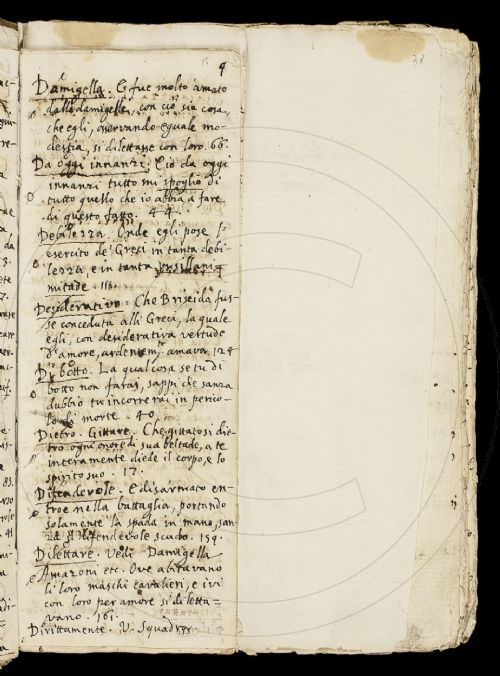 9
Damigella. E fue molto amato
dalle damigelle, con ciò sia cosa
che egli, osservando eguale mo-
destia, si dilettasse con loro. 66.
Da oggi innanzi. E io da oggi
innanzi tutto mi spoglio di
tutto quello che io abbia a fare
di questo fatto. 44.
Debilezza. Onde egli pose l'
esercito de' Greci in tanta debi-
lezza, e in tanta pusillani-
mitade. 116.
Desiderativo. Che Briseida fus-
se conceduta alli Greci, la quale
egli, con desiderativa vertude
d'amore, ardentem.te amava. 124
Di botto. La qual cosa se tu di
botto non farai, sappi che sanza
dubbio tu incorrerai in perico-
lo di morte. 40.
Dietro. Gittare. Che gittatosi die-
tro ogni onore di sua beltade, a te
interamente diede il corpo, e lo
spirito suo. 17.
Difendevole. E disarmato en-
troe nella battaglia, portando
solamente la spada in mano, san-
za il difendevole scudo. 159.
Dilettare. Vedi Damigella
Amazoni etc. Ove abitavano
li loro maschi cavalieri, e ivi
con loro per amore si diletta-
vano. 161.
Dirittamente. V. Squadrer